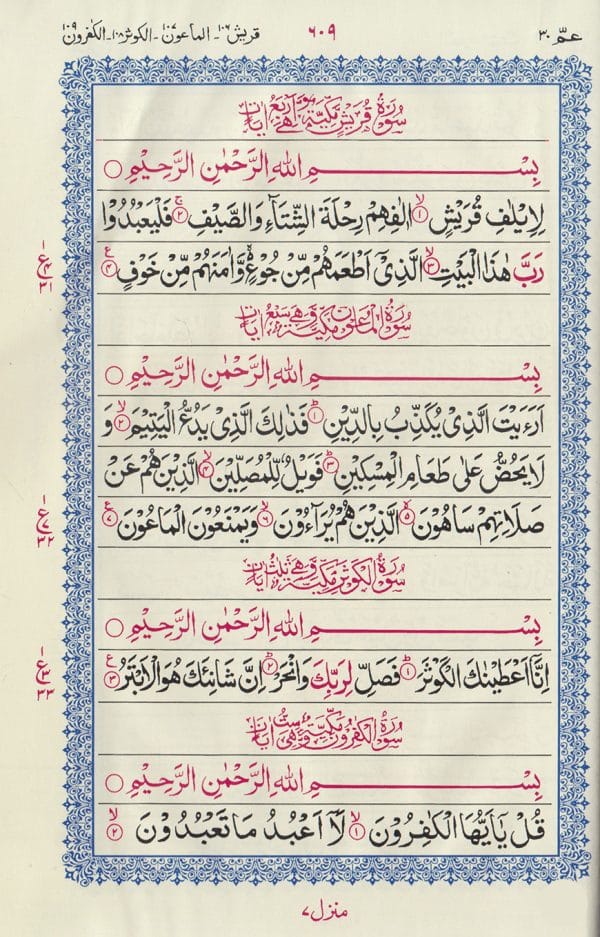 عمّ ٣٠
٦٠٩
قریش ١٠٦ - الماعون ١٠٧ - الکوثر ١٠٨ - الکفرون ١٠٩
سُوْرَةُ قُرَيْشٍ مَّكِّيَّةٌ وَّهِيَ اَرْبَعُ اٰيَاتٍ
بِسْمِ اللهِ الرَّحْمٰنِ الرَّحِيْمِ ○
لِاِيْلٰفِ قُرَيْشٍ ۙ﴿١﴾ اٖلٰفِهِمْ رِحْلَةَ الشِّتَآءِ وَالصَّيْفِ ۚ﴿٢﴾ فَلْيَعْبُدُوْا
رَبَّ هٰذَا الْبَيْتِ ۙ﴿٣﴾ الَّذِيْٓ اَطْعَمَهُمْ مِّنْ جُوْعٍ ۙ وَّاٰمَنَهُمْ مِّنْ خَوْفٍ ﴿٤﴾
١ ع ٤ ٣١
سُوْرَةُ الْمَاعُوْنِ مَكِّيَّةٌ وَّهِيَ سَبْعُ اٰيَاتٍ
بِسْمِ اللهِ الرَّحْمٰنِ الرَّحِيْمِ ○
اَرَءَيْتَ الَّذِيْ يُكَذِّبُ بِالدِّيْنِ ؕ﴿١﴾ فَذٰلِكَ الَّذِيْ يَدُعُّ الْيَتِيْمَ ۙ﴿٢﴾ وَ
لَا يَحُضُّ عَلٰى طَعَامِ الْمِسْكِيْنِ ؕ﴿٣﴾ فَوَيْلٌ لِّلْمُصَلِّيْنَ ۙ﴿٤﴾ الَّذِيْنَ هُمْ عَنْ
صَلَاتِهِمْ سَاهُوْنَ ۙ﴿٥﴾ الَّذِيْنَ هُمْ يُرَآءُوْنَ ۙ﴿٦﴾ وَيَمْنَعُوْنَ الْمَاعُوْنَ ﴿٧﴾
١ ع ٧ ٣٢
سُوْرَةُ الْكَوْثَرِ مَكِّيَّةٌ وَّهِيَ ثَلٰثُ اٰيَاتٍ
بِسْمِ اللهِ الرَّحْمٰنِ الرَّحِيْمِ ○
اِنَّآ اَعْطَيْنٰكَ الْكَوْثَرَ ؕ﴿١﴾ فَصَلِّ لِرَبِّكَ وَانْحَرْ ؕ﴿٢﴾ اِنَّ شَانِئَكَ هُوَ الْاَبْتَرُ ﴿٣﴾
١ ع ٣ ٣٣
سُوْرَةُ الْكٰفِرُوْنَ مَكِّيَّةٌ وَّهِيَ سِتُّ اٰيَاتٍ
بِسْمِ اللهِ الرَّحْمٰنِ الرَّحِيْمِ ○
قُلْ يٰٓاَيُّهَا الْكٰفِرُوْنَ ۙ﴿١﴾ لَآ اَعْبُدُ مَا تَعْبُدُوْنَ ۙ﴿٢﴾
منزل ٧